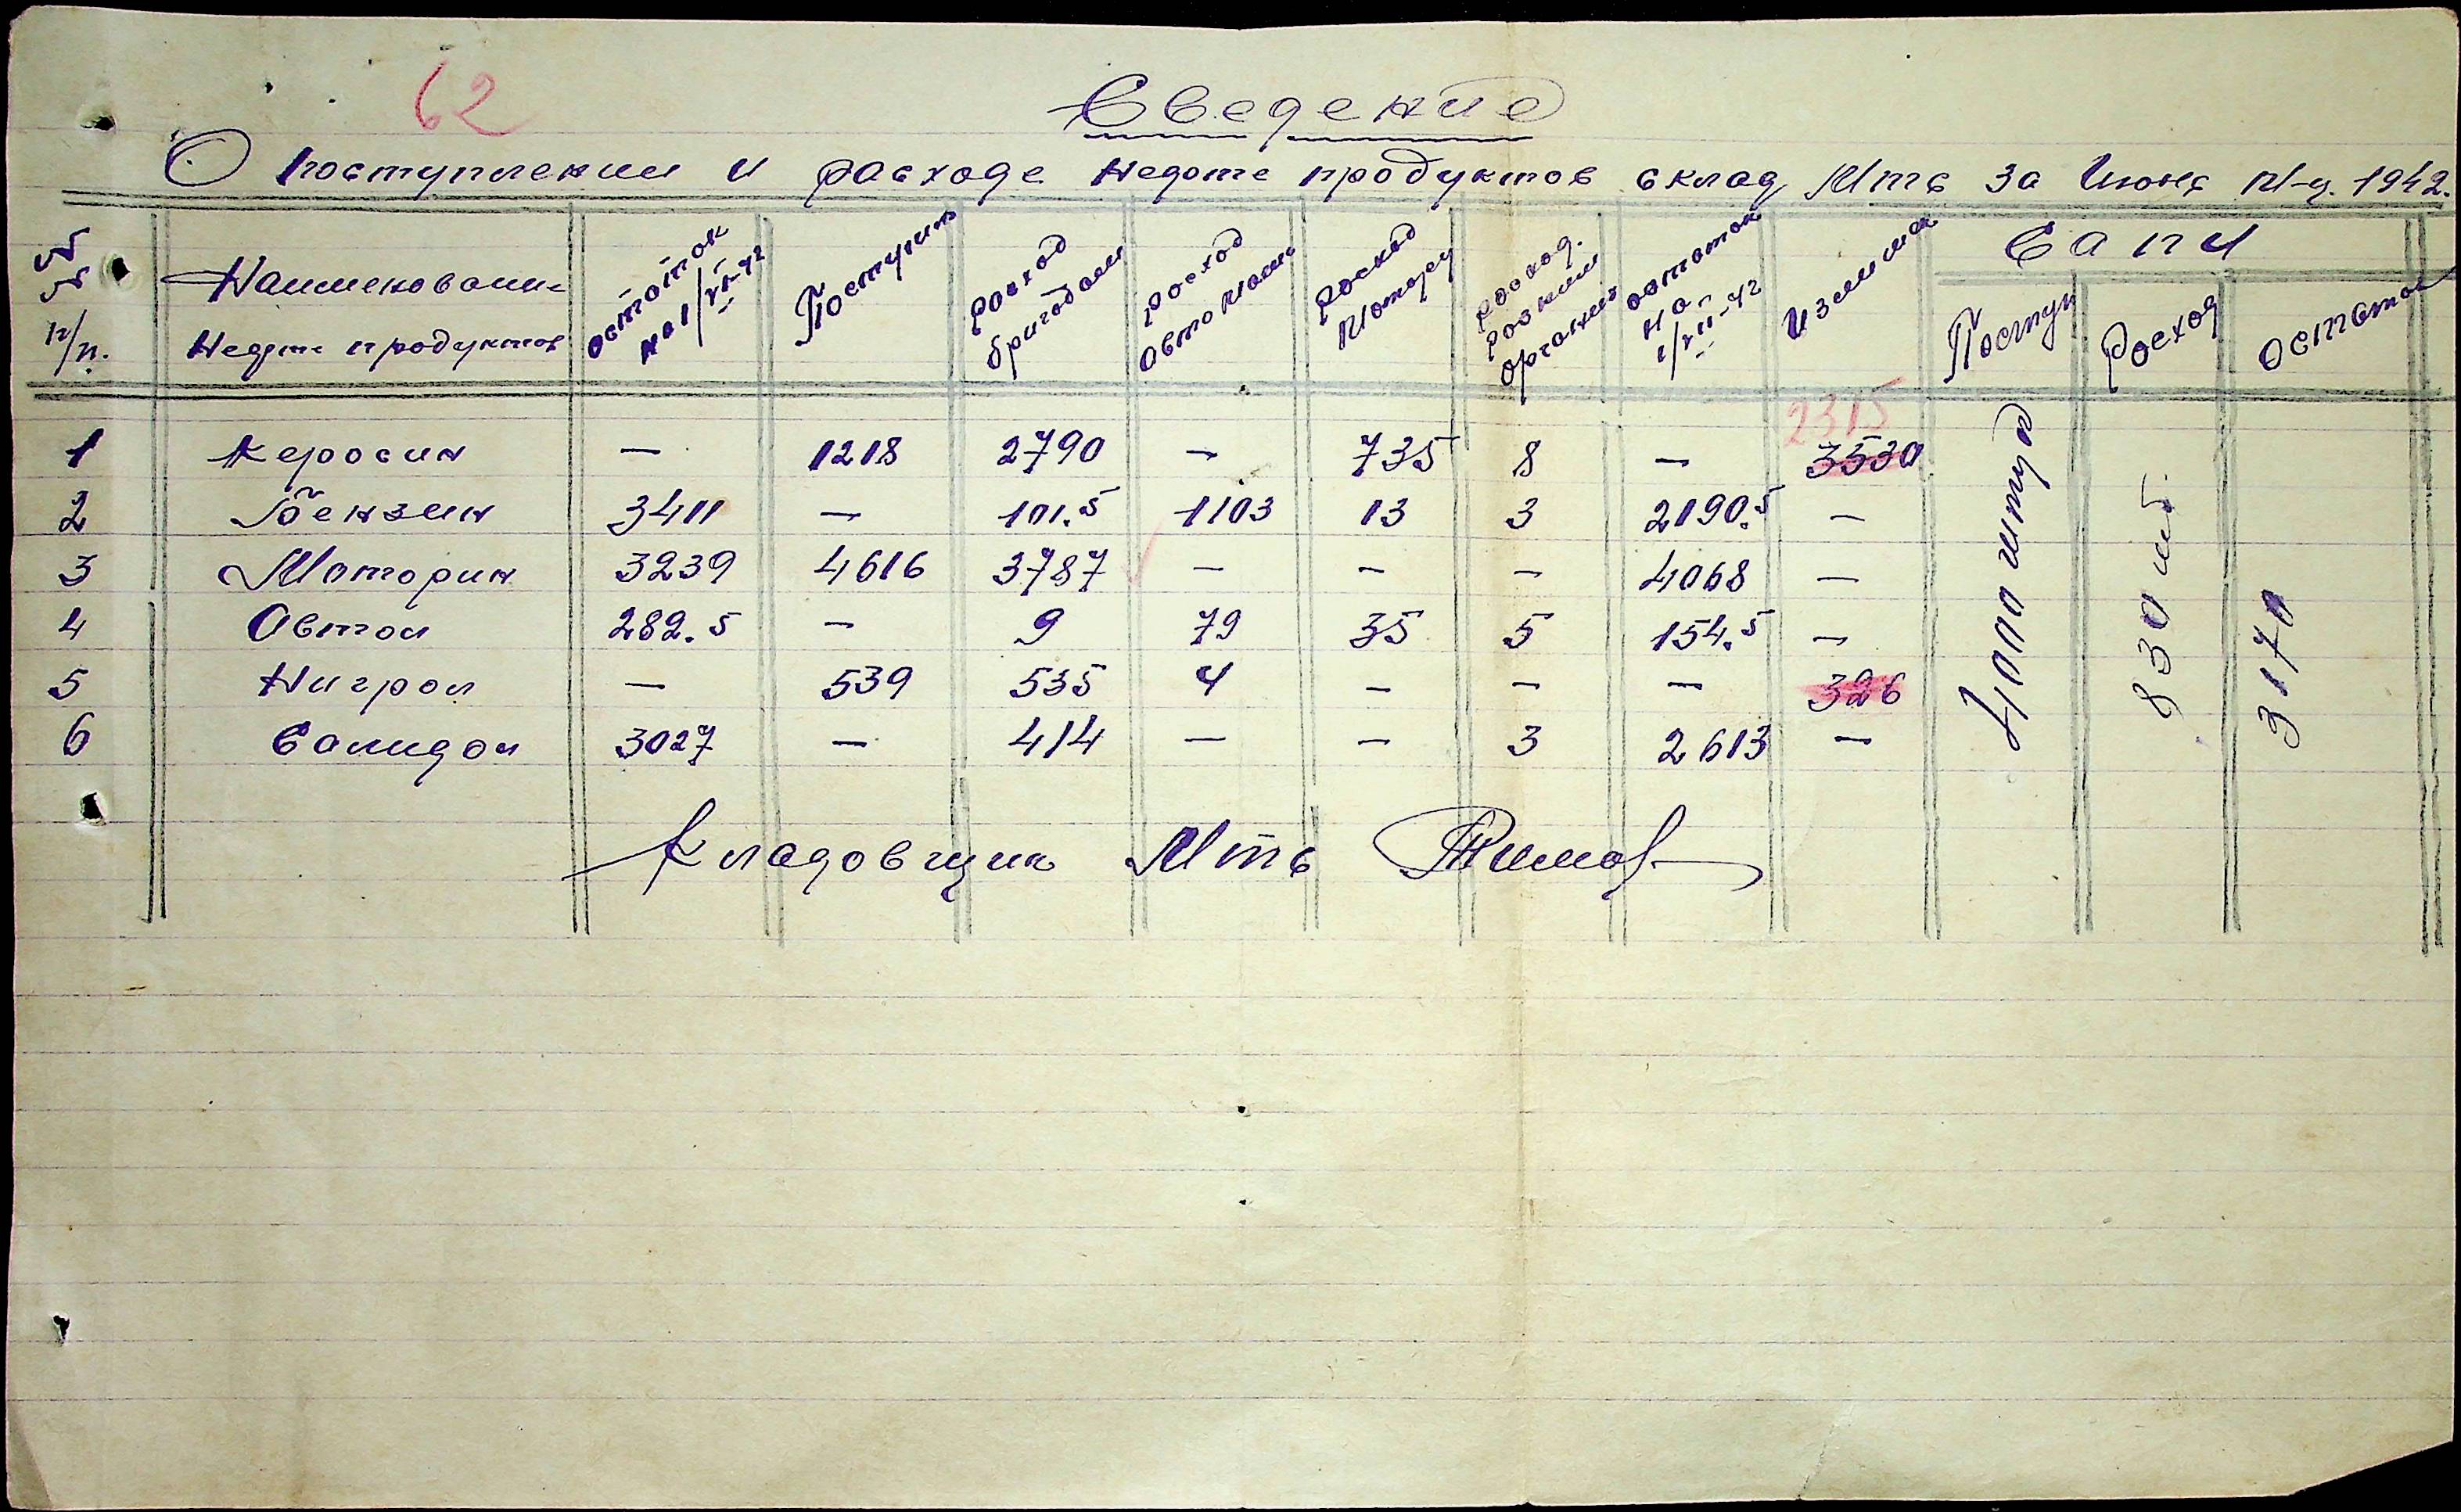 62
Сведение
О поступлении и расходе Недоте продуктов склад Мтс за Июнь м-ц. 1942.
№ № п/п. | Наименовани- Недоте продуктов | остоток на 1/VI-42 | Поступил | Росход бригадам | Росход Авто маш | Росход Мотору | Росход. розним органи | остоток на 1/VII-42 | Излишки | Сапи
Поступ | Росход | остоток
2315
1 | Керосин | — | 1218 | 2790 | — | 735 | 8 | — | 3530
2 | Бензин | 3411 | — | 101.5 | 1103 | 13 | 3 | 2190.5 | —
3 | Моторин | 3239 | 4616 | 3787 | — | — | — | 4068 | —
4 | Автол | 282.5 | — | 9 | 79 | 35 | 5 | 154.5 | —
5 | Нигрол | — | 539 | 535 | 4 | — | — | — | 326
6 | Солидол | 3027 | — | 414 | — | — | 3 | 2613 | —
4000 штук | 830 шт. | 3170
Кладовщик Мтс